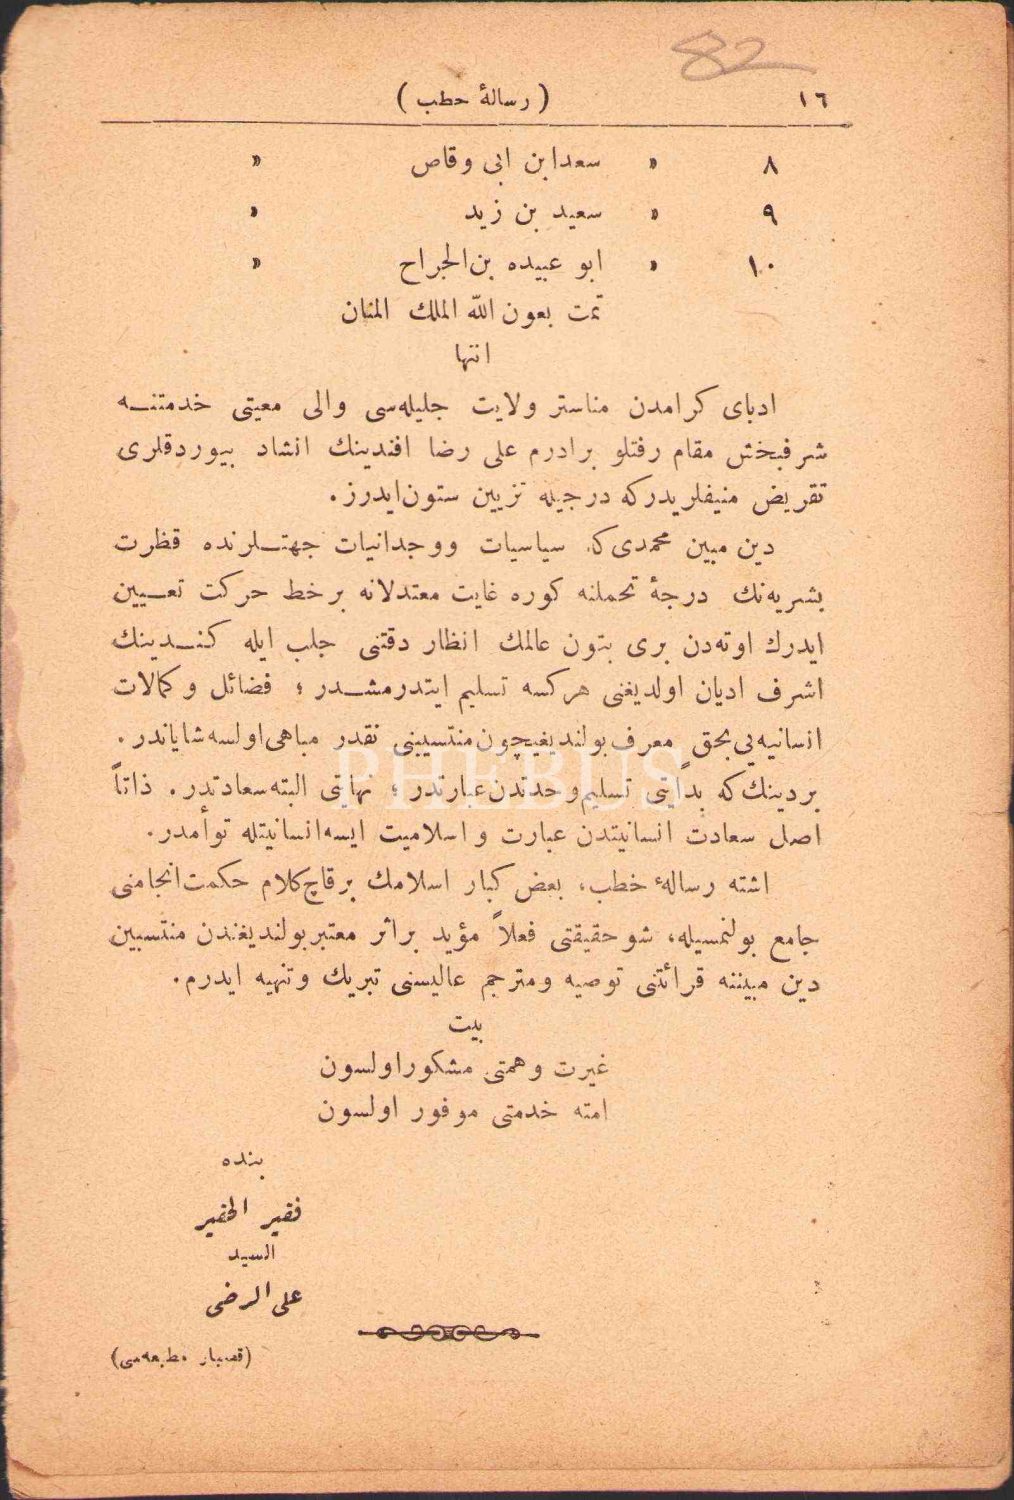 82
١٦ ( رسالهٔ حطب )
٨ » سعدابن ابى وقاص »
٩ » سعيد بن زيد »
١٠ » ابو عبيده بن‌الجراح »
تمت بعون الله الملك المنان
انتها
ادباى كرامدن مناستر ولايت جليله‌سى والى معيتى خدمتنـه
شرفبخش مقام رفتلو برادرم على رضا افندينك انشاد بيوردقلرى
تقريض منيفلريدركه درجيله تزيين ستون‌ايدرز.
دين مبين محمدى‌كه سياسيات ووجدانيات جهتـلرنده فظرت
بشريه‌نك درجهٔ تحملنه كوره غايت معتدلانه برخط حركت تعـيين
ايدرك اوته‌دن برى بتون عالمك انظار دقتنى جلب ايله كنـدينك
اشرف اديان اولديغنى هركسه تسليم ايتدرمشـدر ؛ فضائل وكمالات
انسانيه‌يى بحق معرف‌بولنديغيچون‌منتسيبنى نقدر مباهى‌اولسه‌شاياندر.
بردينك‌كه بدايتى تسليم‌وحدتدن‌عبارتدر ؛ نهايتى البته‌سعادتدر. ذاتاً
اصل سعادت انسانيتدن عبارت واسلاميت ايسه‌انسانيتله توأمدر.
اشته رسالهٔ خطب، بعض كبار اسلامك برقاچ‌كلام حكمت‌انجامنى
جامع بولنمسيله، شوحقيقتى فعلاً مؤيد براثر معتبربولنديغندن منتسبين
دين مبيننه قرائتنى توصيه ومترجم عاليسنى تبريك وتنهيه ايدرم.
بيت
غيرت وهمتى مشكوراولسون
امته خدمتى موفور اولسون
بنده
فقير الحقير
السيد
على‌الرضى
(قصبار مطبعه‌سى)
PHEBUS